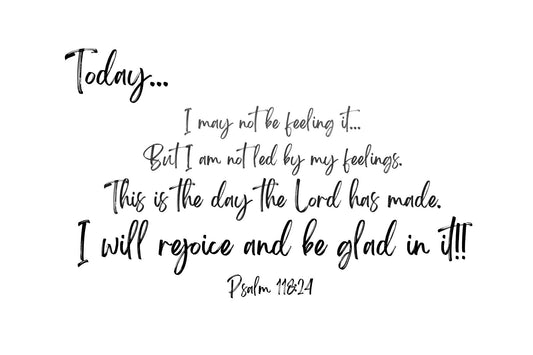 Today...
I may not be feeling it...
But I am not led by my feelings.
This is the day the Lord has made.
I will rejoice and be glad in it!!
Psalm 118:24